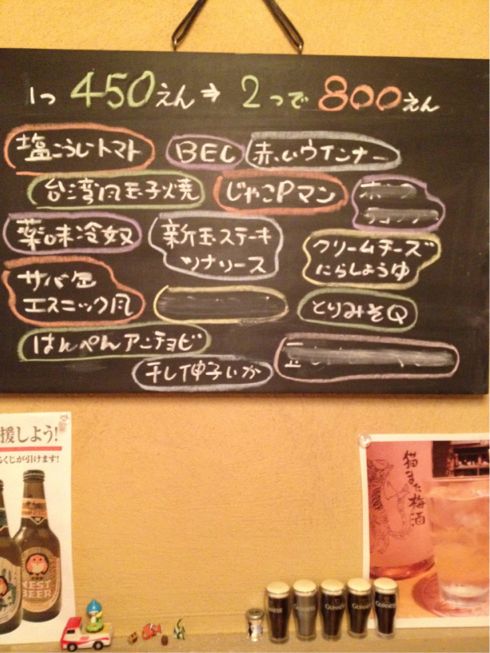 1つ 450えん⇒2つで800えん
塩こうじトマト
BEC
赤いウインナー
台湾風玉子焼
じゃこPマン
薬味冷奴
新玉ステーキ
ツナソース
クリームチーズ
にらしょうゆ
サバ缶
エスニック風
とりみそQ
はんぺんアンチョビ
干し伊子いか
援しよう!
るくじが引けます!
NEST
BEER
猫また梅酒
GUINNESS